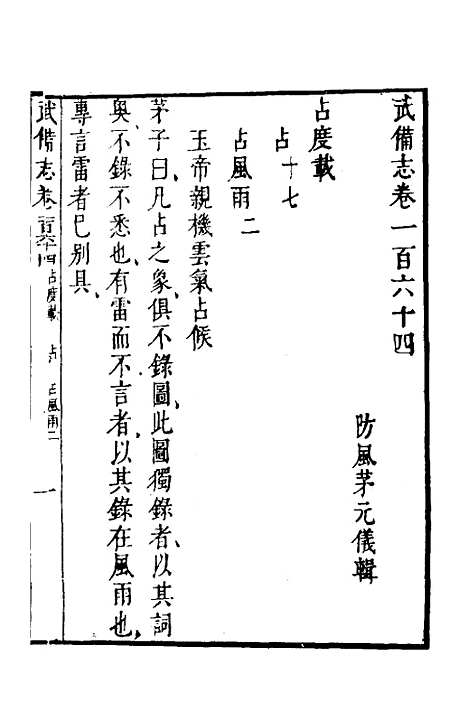 武備志卷一百六十四
防風茅元儀輯
占度載
占十七
占風雨二
玉帝親機雲氣占候
茅子曰、凡占之象、俱不錄圖、此圖獨錄者、以其詞
奧、不錄不悉也、有雷而不言者、以其錄在風雨也、
專言雷者巳别具、
武備志卷一百六十四 占度載 占 占風雨二 一